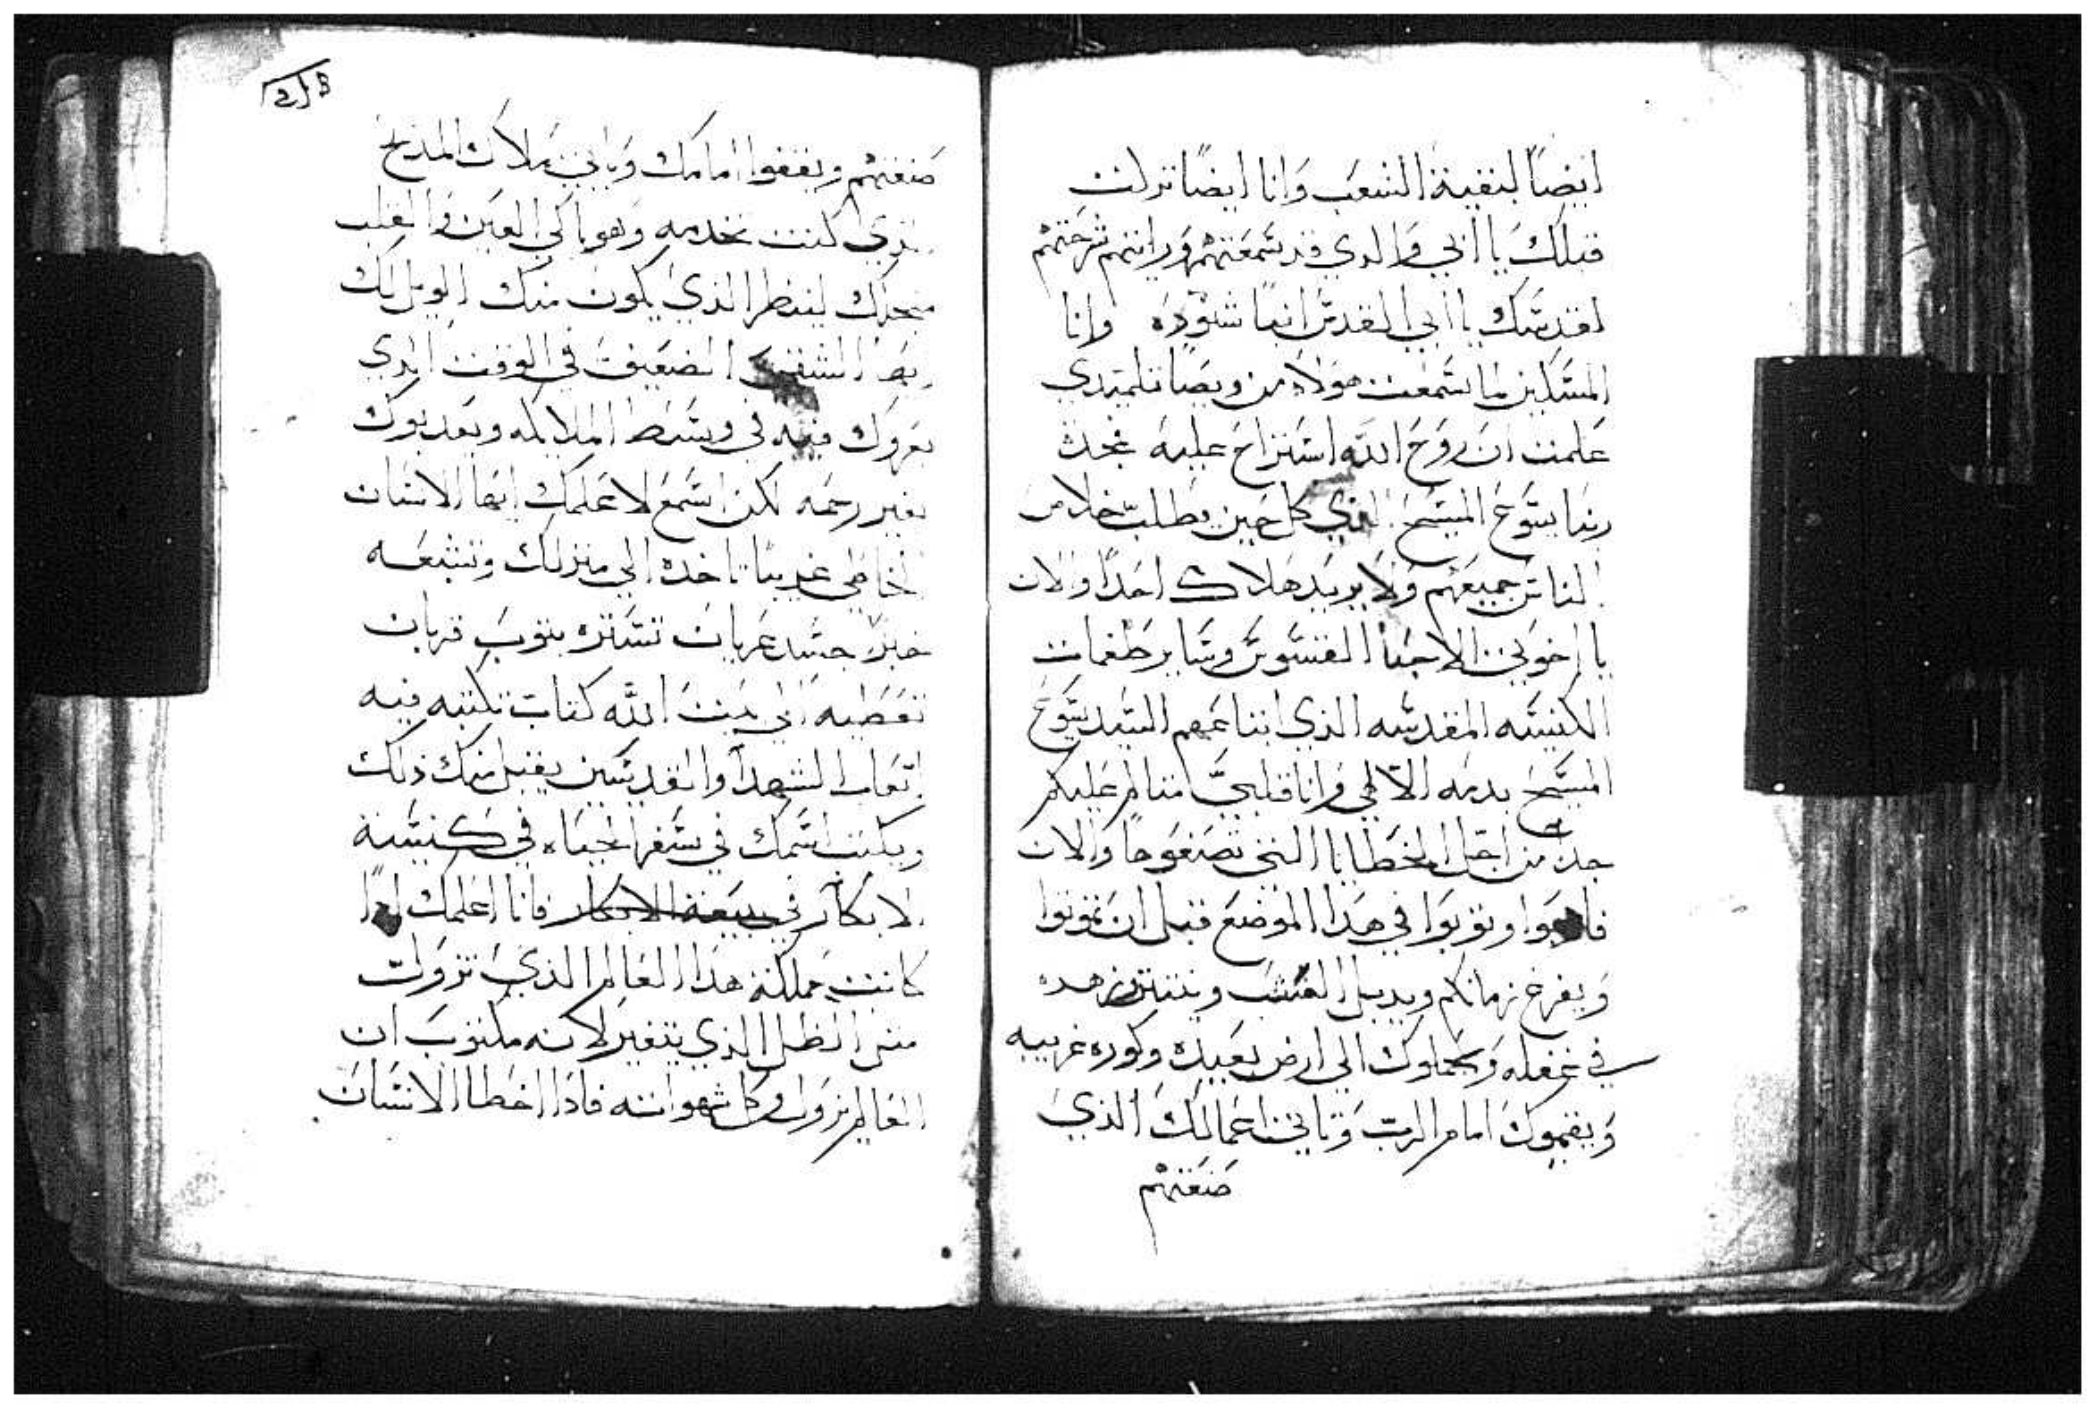 ايضًا لبقية الشعب وانا ايضًا نزلت
قبلك يا ابي والدي قد سمعتهم ورايتهم شرحتهم
لقدسك يا ابي القديس انبا شنوده وانا
المسكين لما سمعت هولاء من ويصا تلميدي
علمت ان روح الله استراح عليه بمجد
ربنا يسوع المسيح الذي كل حين يطلب خلاص
الناس جميعهم ولا يريد هلاك احدًا والان
يا اخوتي الاحبا القسوس وساير طغمات
الكنيسه المقدسه الذي ابتاعهم السيد يسوع
المسيح بدمه الالهي وانا قلبي متالم عليكم
جدا من اجل الخطايا التي تصنعوها والان
فا وتوبوا في هدا الموضع قبل ان تموتوا
ويفرغ زمانكم ويدبل العشب وينتثر زهده
في غفله ويحملوك الي ارض بعيده وكوره غريبه
ويقيموك امام الرب وتاتي اعمالك الذي
صنعتهم
صنعتهم ويقفوا امامك وياتي ملاك المذبح
الذي كنت تخدمه وهو باكي العين والقلب
من اجلك لينظر الذي يكون منك الويل لك
ايها الشقي الضعيف في الوقت الدي
يعروك فيه في وسط الملايكه ويعدبوك
بغير رحمه لكن اسمع لاعلمك ايها الانسان
الخاطي غريبًا تاخده الي منزلك وتشبعه
خبزًا جسد عريان تستره بتوب قربان
تعطيه الي بيت الله كتاب تكتبه فيه
اتعاب الشهدا والقديسين يقبل منك ذلك
ويكتب اسمك في سفر الحياه في كنيسة
الابكار في بيعة الابكار فانا اعلمك ادًا
كانت مملكة هدا العالم الذي تزول
مثل الظل الذي يتغير لانه مكتوب ان
العالم يزول وكل شهواته فادا اخطا الانسان